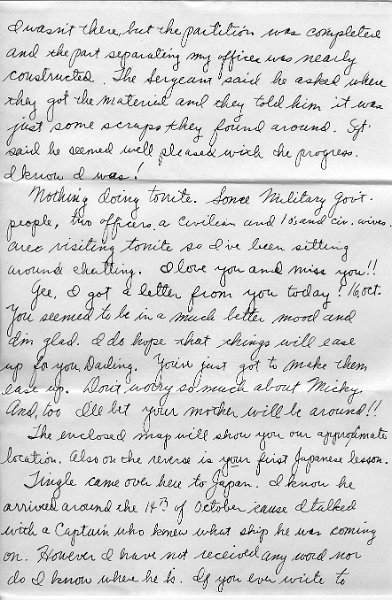 I wasn't there, but the partition was completed
and the part separating my office was nearly
constructed. The Sergeant said he asked where
they got the material and they told him it was
just some scraps they found around. Sgt.
said he seemed well pleased with the progress.
I know I was!
Nothing doing tonite. Some Military Gov't.
people, two officers, a civilian and 1 's and civ. wives
are visiting tonite so I've been sitting
around chatting. I love you and miss you!!
Gee, I got a letter from you today! 16, Oct.
You seemed to be in a much better mood and
I'm glad. I do hope that things will ease
up for you Darling. You've just got to make them
ease up. Don't worry so much about Micky
And, too I'll bet your mother will be around!!
The enclosed map will show you our approximate
location. Also on the reverse is your first Japanese lesson.
Tingle came over here to Japan. I know he
arrived around the 14th of October 'cause I talked
with a Captain who knew what ship he was coming
on. However I have not received any word nor
do I know where he is. If you ever write to